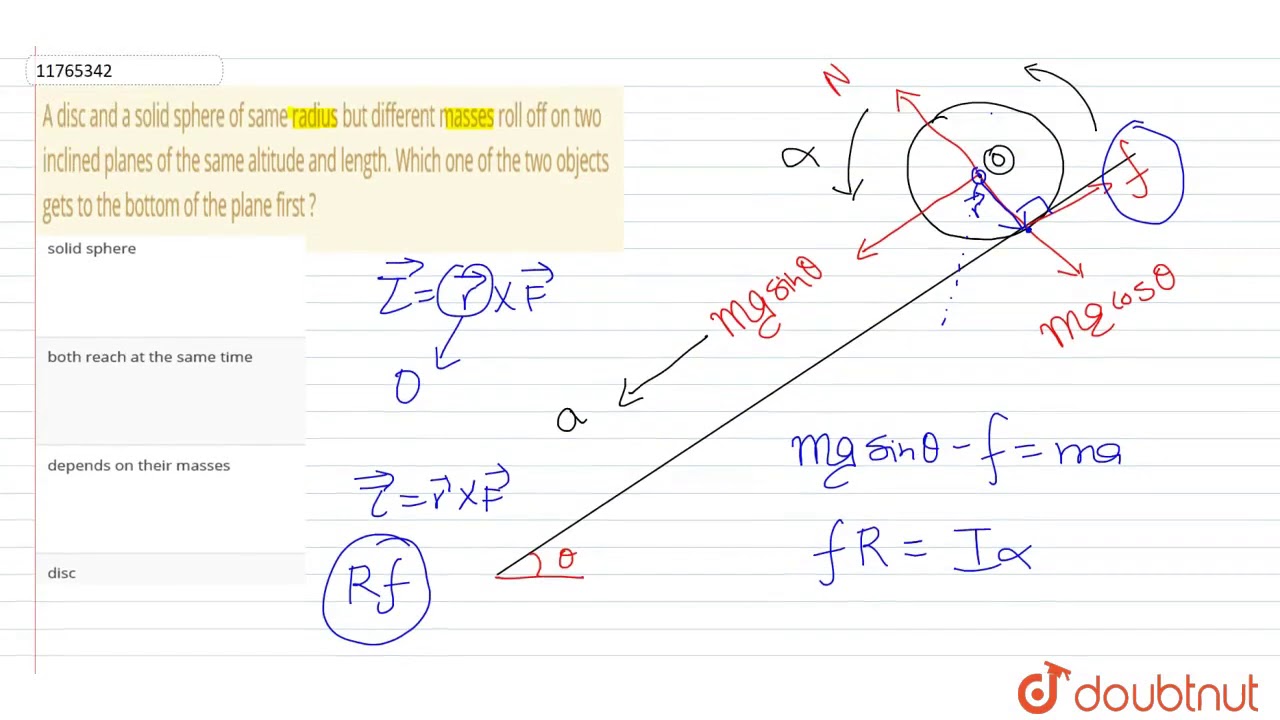 11765342
A disc and a solid sphere of same radius but different masses roll off on two
inclined planes of the same altitude and length. Which one of the two objects
gets to the bottom of the plane first ?
solid sphere
both reach at the same time
depends on their masses
disc
τ⃗ = r⃗ × F⃗
O
τ⃗ = r⃗ × F⃗
Rf
N
α
O
r⃗
f
mg sinθ
mg cosθ
a
θ
mg sinθ - f = ma
fR = Iα
doubtnut